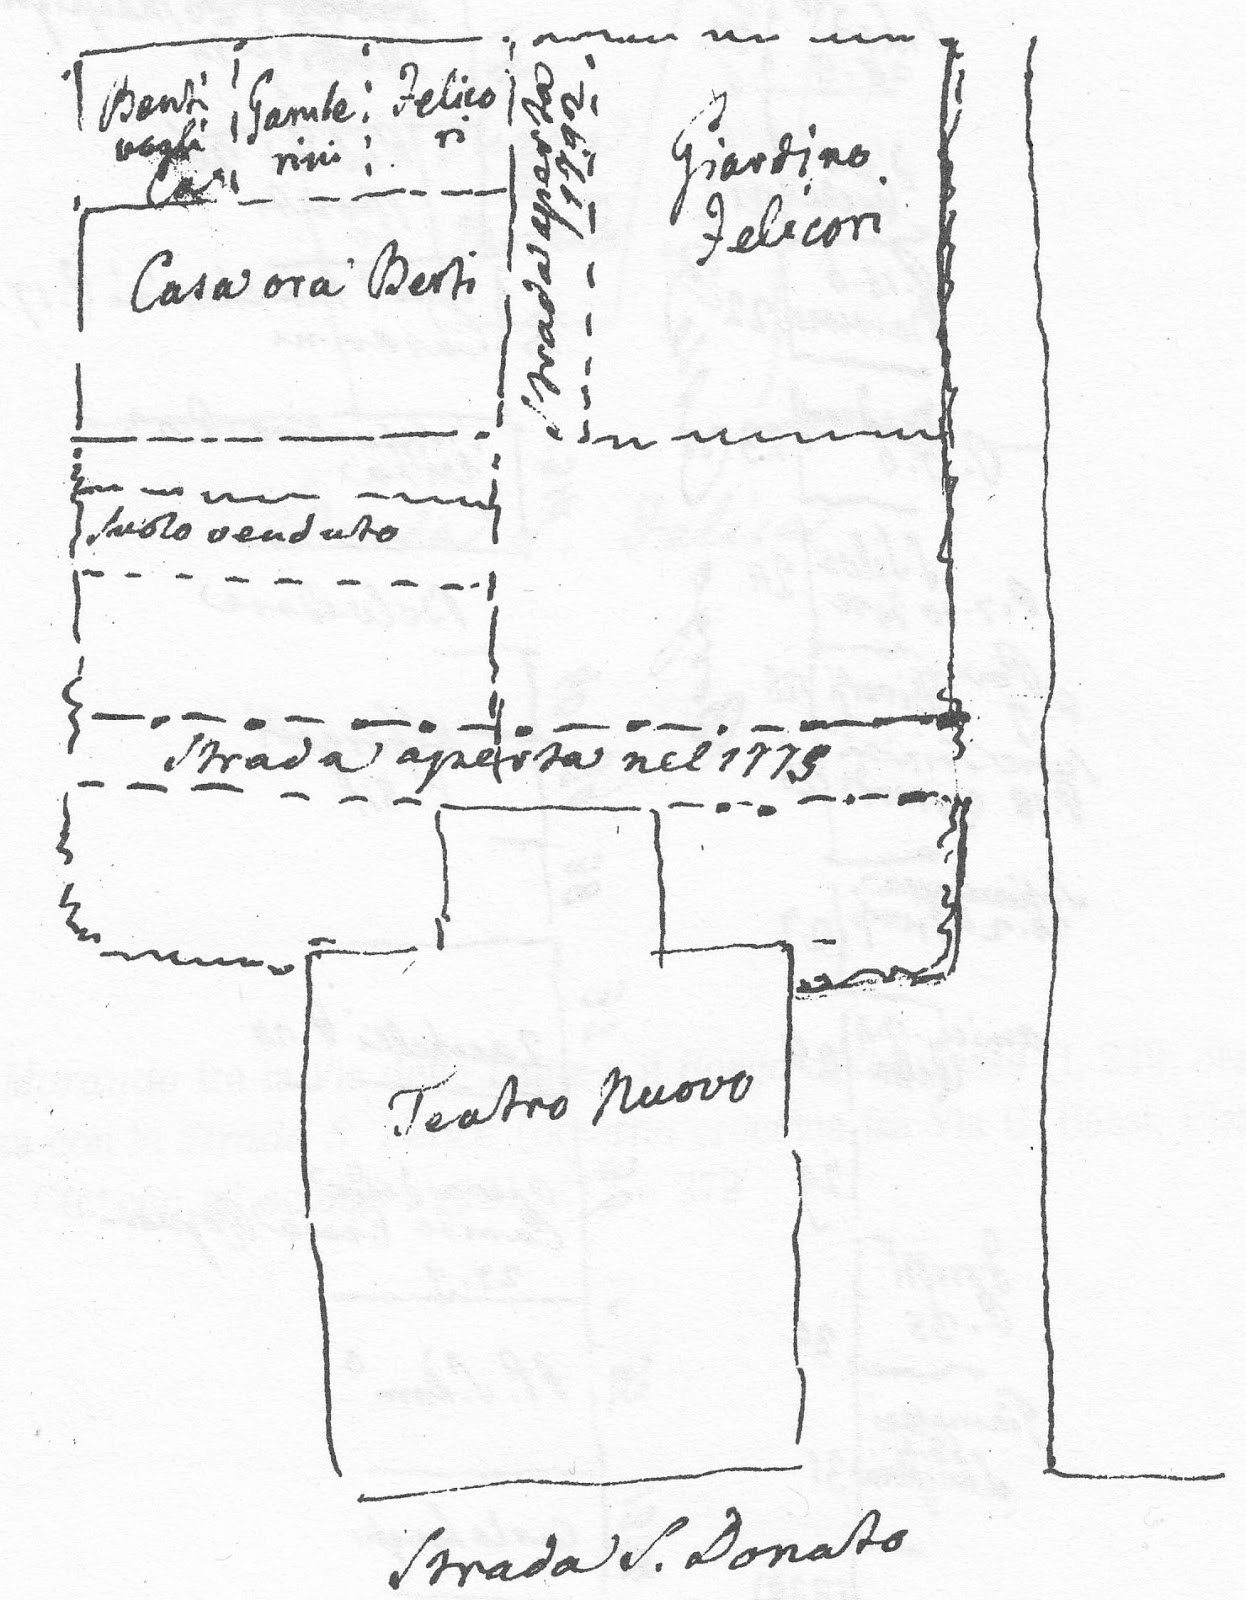 Benti
vogli
Casa
Gambe
rini
Felico
ri
Strada aperta
1792
Giardino
Felicori
Casa ora Berti
Suolo venduto
Strada aperta nel 1775
Teatro Nuovo
Strada S. Donato